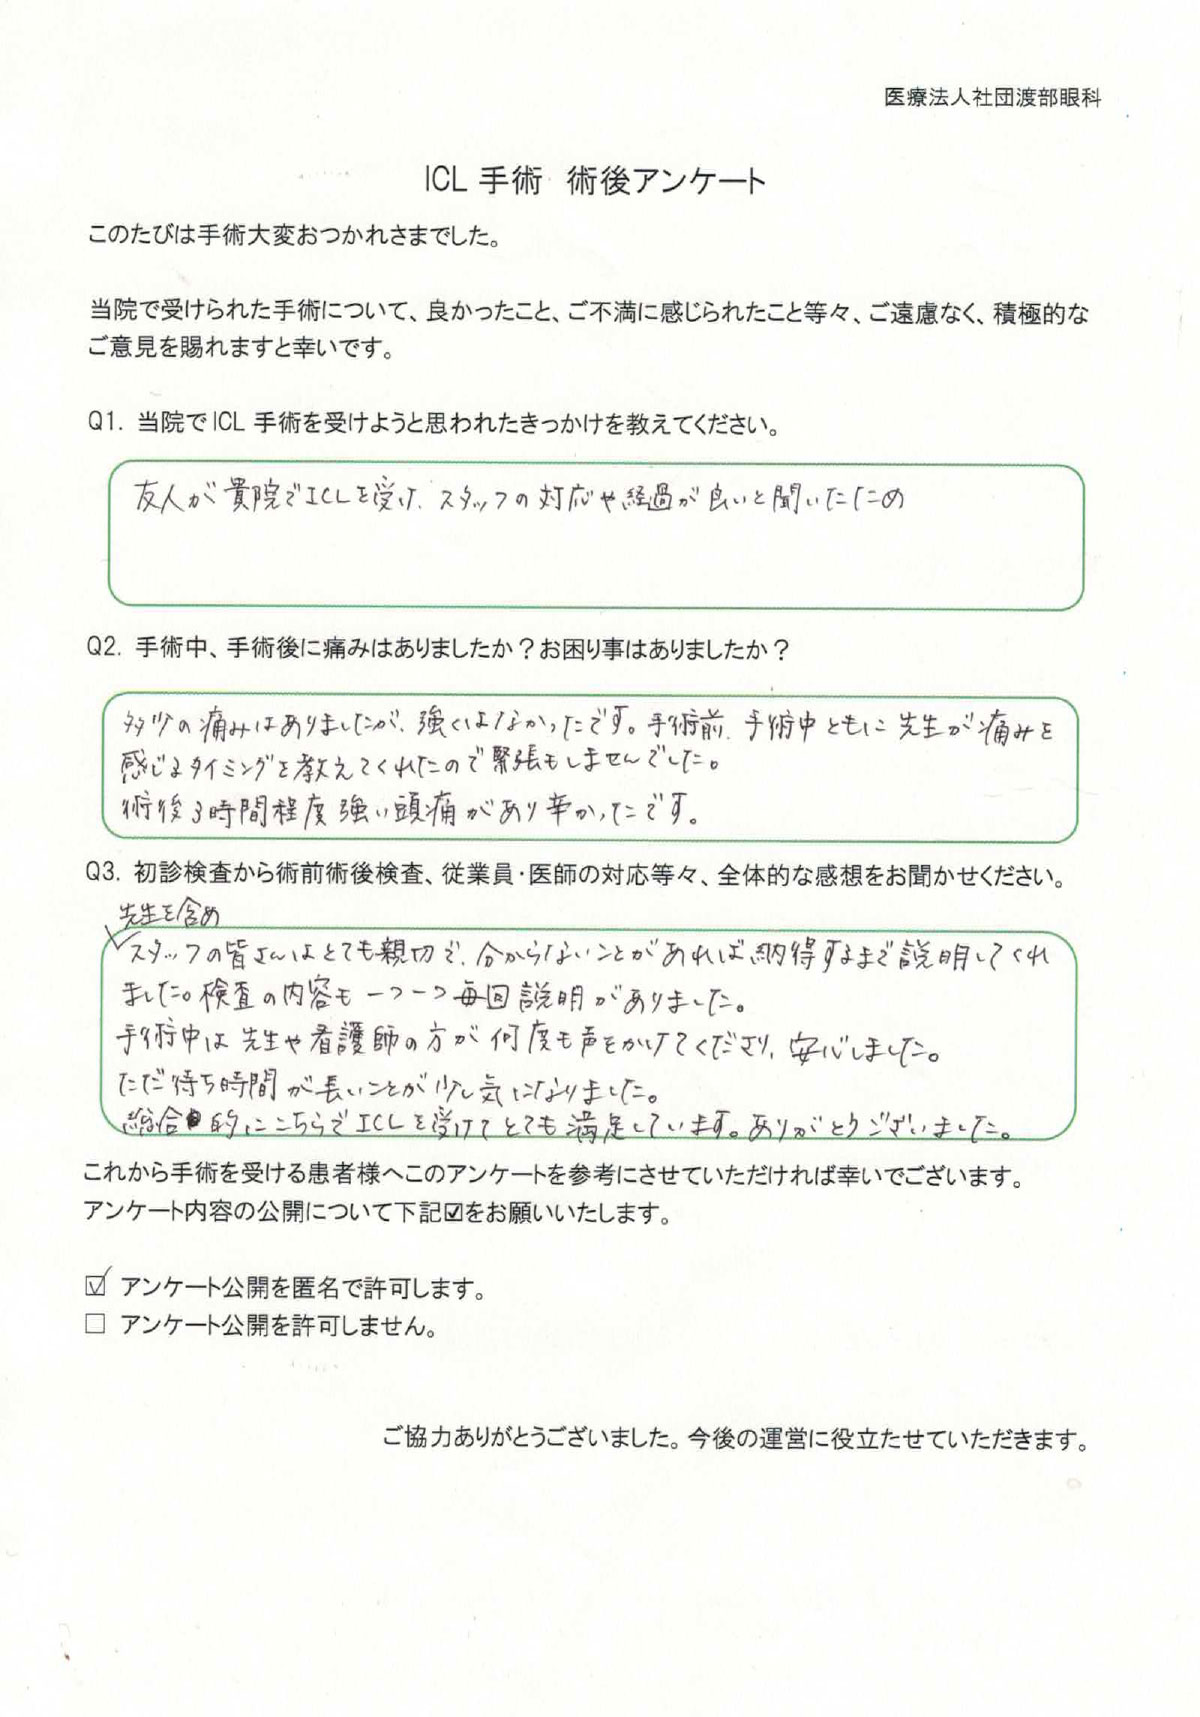 医療法人社団渡部眼科
ICL 手術　術後アンケート
このたびは手術大変おつかれさまでした。
当院で受けられた手術について、良かったこと、ご不満に感じられたこと等々、ご遠慮なく、積極的な
ご意見を賜れますと幸いです。
Q1. 当院でICL 手術を受けようと思われたきっかけを教えてください。
友人が貴院でICLを受け、スタッフの対応や経過が良いと聞いたため
Q2. 手術中、手術後に痛みはありましたか？お困り事はありましたか？
多少の痛みはありましたが、強くはなかったです。手術前、手術中ともに先生が痛みを
感じるタイミングを教えてくれたので緊張もしませんでした。
術後3時間程度強い頭痛があり辛かったです。
Q3. 初診検査から術前術後検査、従業員・医師の対応等々、全体的な感想をお聞かせください。
先生を含め
スタッフの皆さんはとても親切で、分からないことがあれば納得するまで説明してくれ
ました。検査の内容も一つ一つ毎回説明がありました。
手術中は先生や看護師の方が何度も声をかけてくださり、安心しました。
ただ待ち時間が長いことが少し気になりました。
総合的にこちらでICLを受けてとても満足しています。ありがとうございました。
これから手術を受ける患者様へこのアンケートを参考にさせていただければ幸いでございます。
アンケート内容の公開について下記☑をお願いいたします。
☑ アンケート公開を匿名で許可します。
□ アンケート公開を許可しません。
ご協力ありがとうございました。今後の運営に役立たせていただきます。